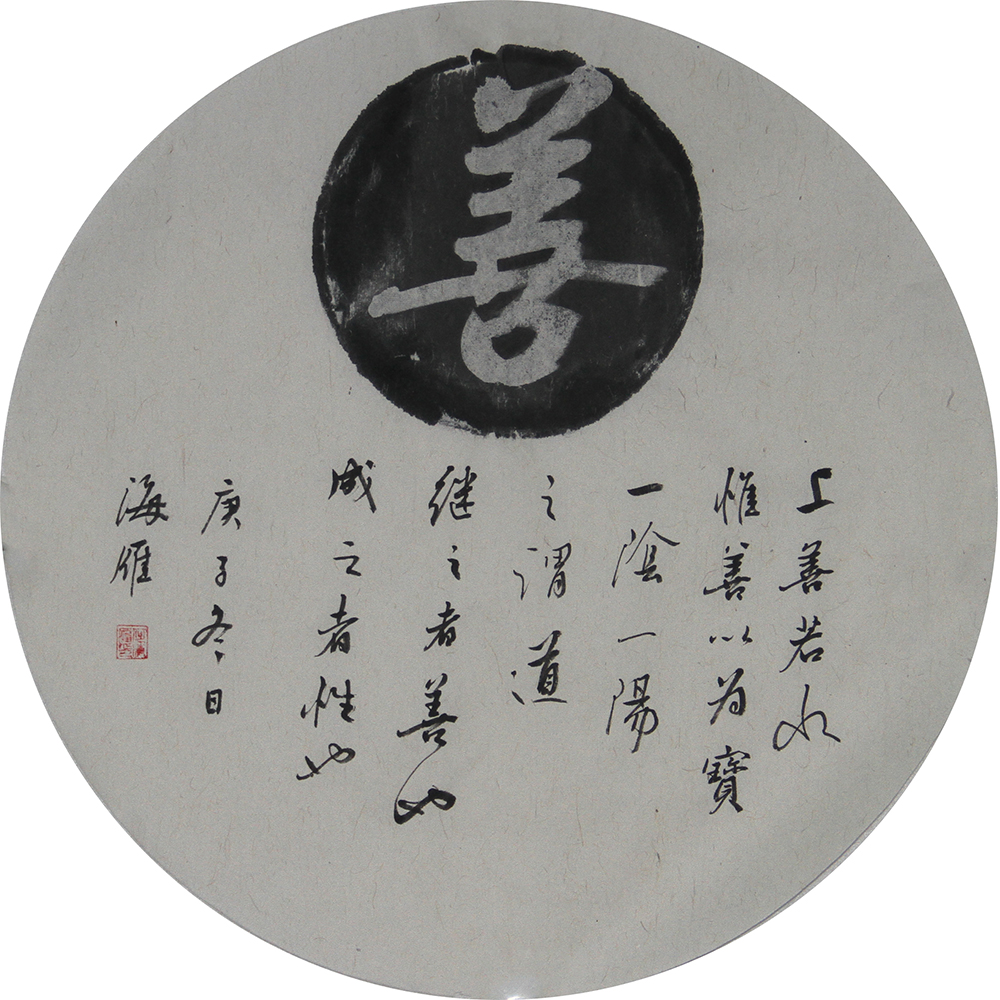 善
上善若水
惟善以为寶
一陰一陽
之謂道
继之者善也
成之者性也
庚子冬日
海雁